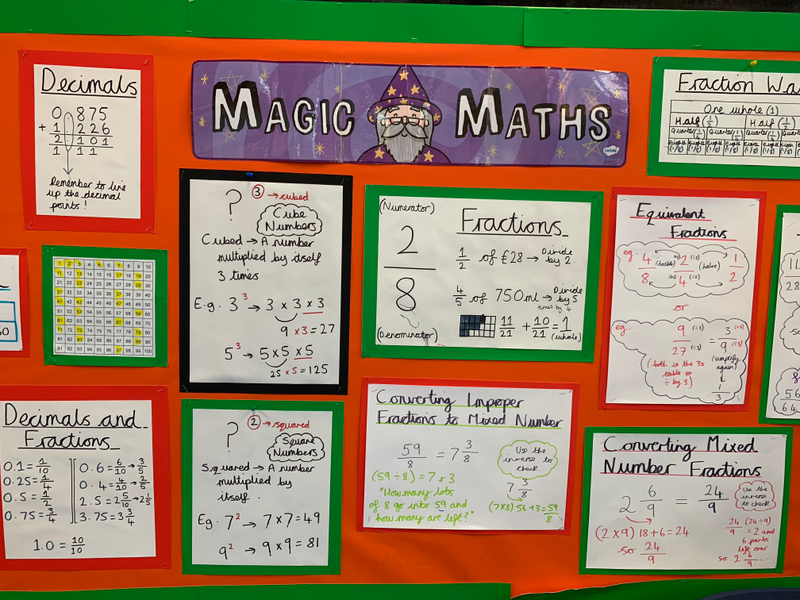 MAGIC MATHS
Decimals
0.875
+ 1.226
2.101
1 1 1
Remember to line
up the decimal
points!
? ③ → cubed
Cube
Numbers
Cubed → A number
multiplied by itself
3 times
E.g. 3³ → 3 × 3 × 3
9 × 3 = 27
5³ → 5 × 5 × 5
25 × 5 = 125
(Numerator)
2
8
(Denominator)
Fractions
1/2 of £28 → Divide
by 2.
4/5 of 750ml → Divide
by 5
times by 4
11/21 + 10/21 = 1
(whole)
Equivalent
Fractions
eg. 4/8 2/4 1/2
(double) (halve)
or
eg. 9/27 (÷3) = 3/9 (÷3)
(both in the 3x
table so
÷ by 3)
(simplify
again)
1
3
Fraction Wa
One whole (1)
Half (1/2) Half (1/2)
Quarter (1/4) Quarter (1/4) Quarter (1/4)
Decimals and
Fractions
0.1 = 1/10
0.25 = 1/4
0.5 = 1/2
0.75 = 3/4
0.6 = 6/10 → 3/5
0.4 = 4/10 → 2/5
2.5 = 2 5/10 → 2 1/2
3.75 = 3 3/4
1.0 = 10/10
? ② → squared
Square
Numbers
Squared → A number
multiplied by
itself.
Eg. 7² → 7 × 7 = 49
9² → 9 × 9 = 81
Converting Improper
Fractions to Mixed Number
59/8 = 7 3/8
(59 ÷ 8) = 7 r 3
"How many lots
of 8 go into 59 and
how many are left?"
Use the
inverse to
check.
7 3/8
(7×8) 56 + 3 = 59/8
Converting Mixed
Number Fractions
2 6/9 = 24/9
(2 × 9) 18 + 6 = 24
so 24/9
Use the
inverse
to check
24/9 (24 ÷ 9)
= 2 and
6 parts
left over
so 2 6/9